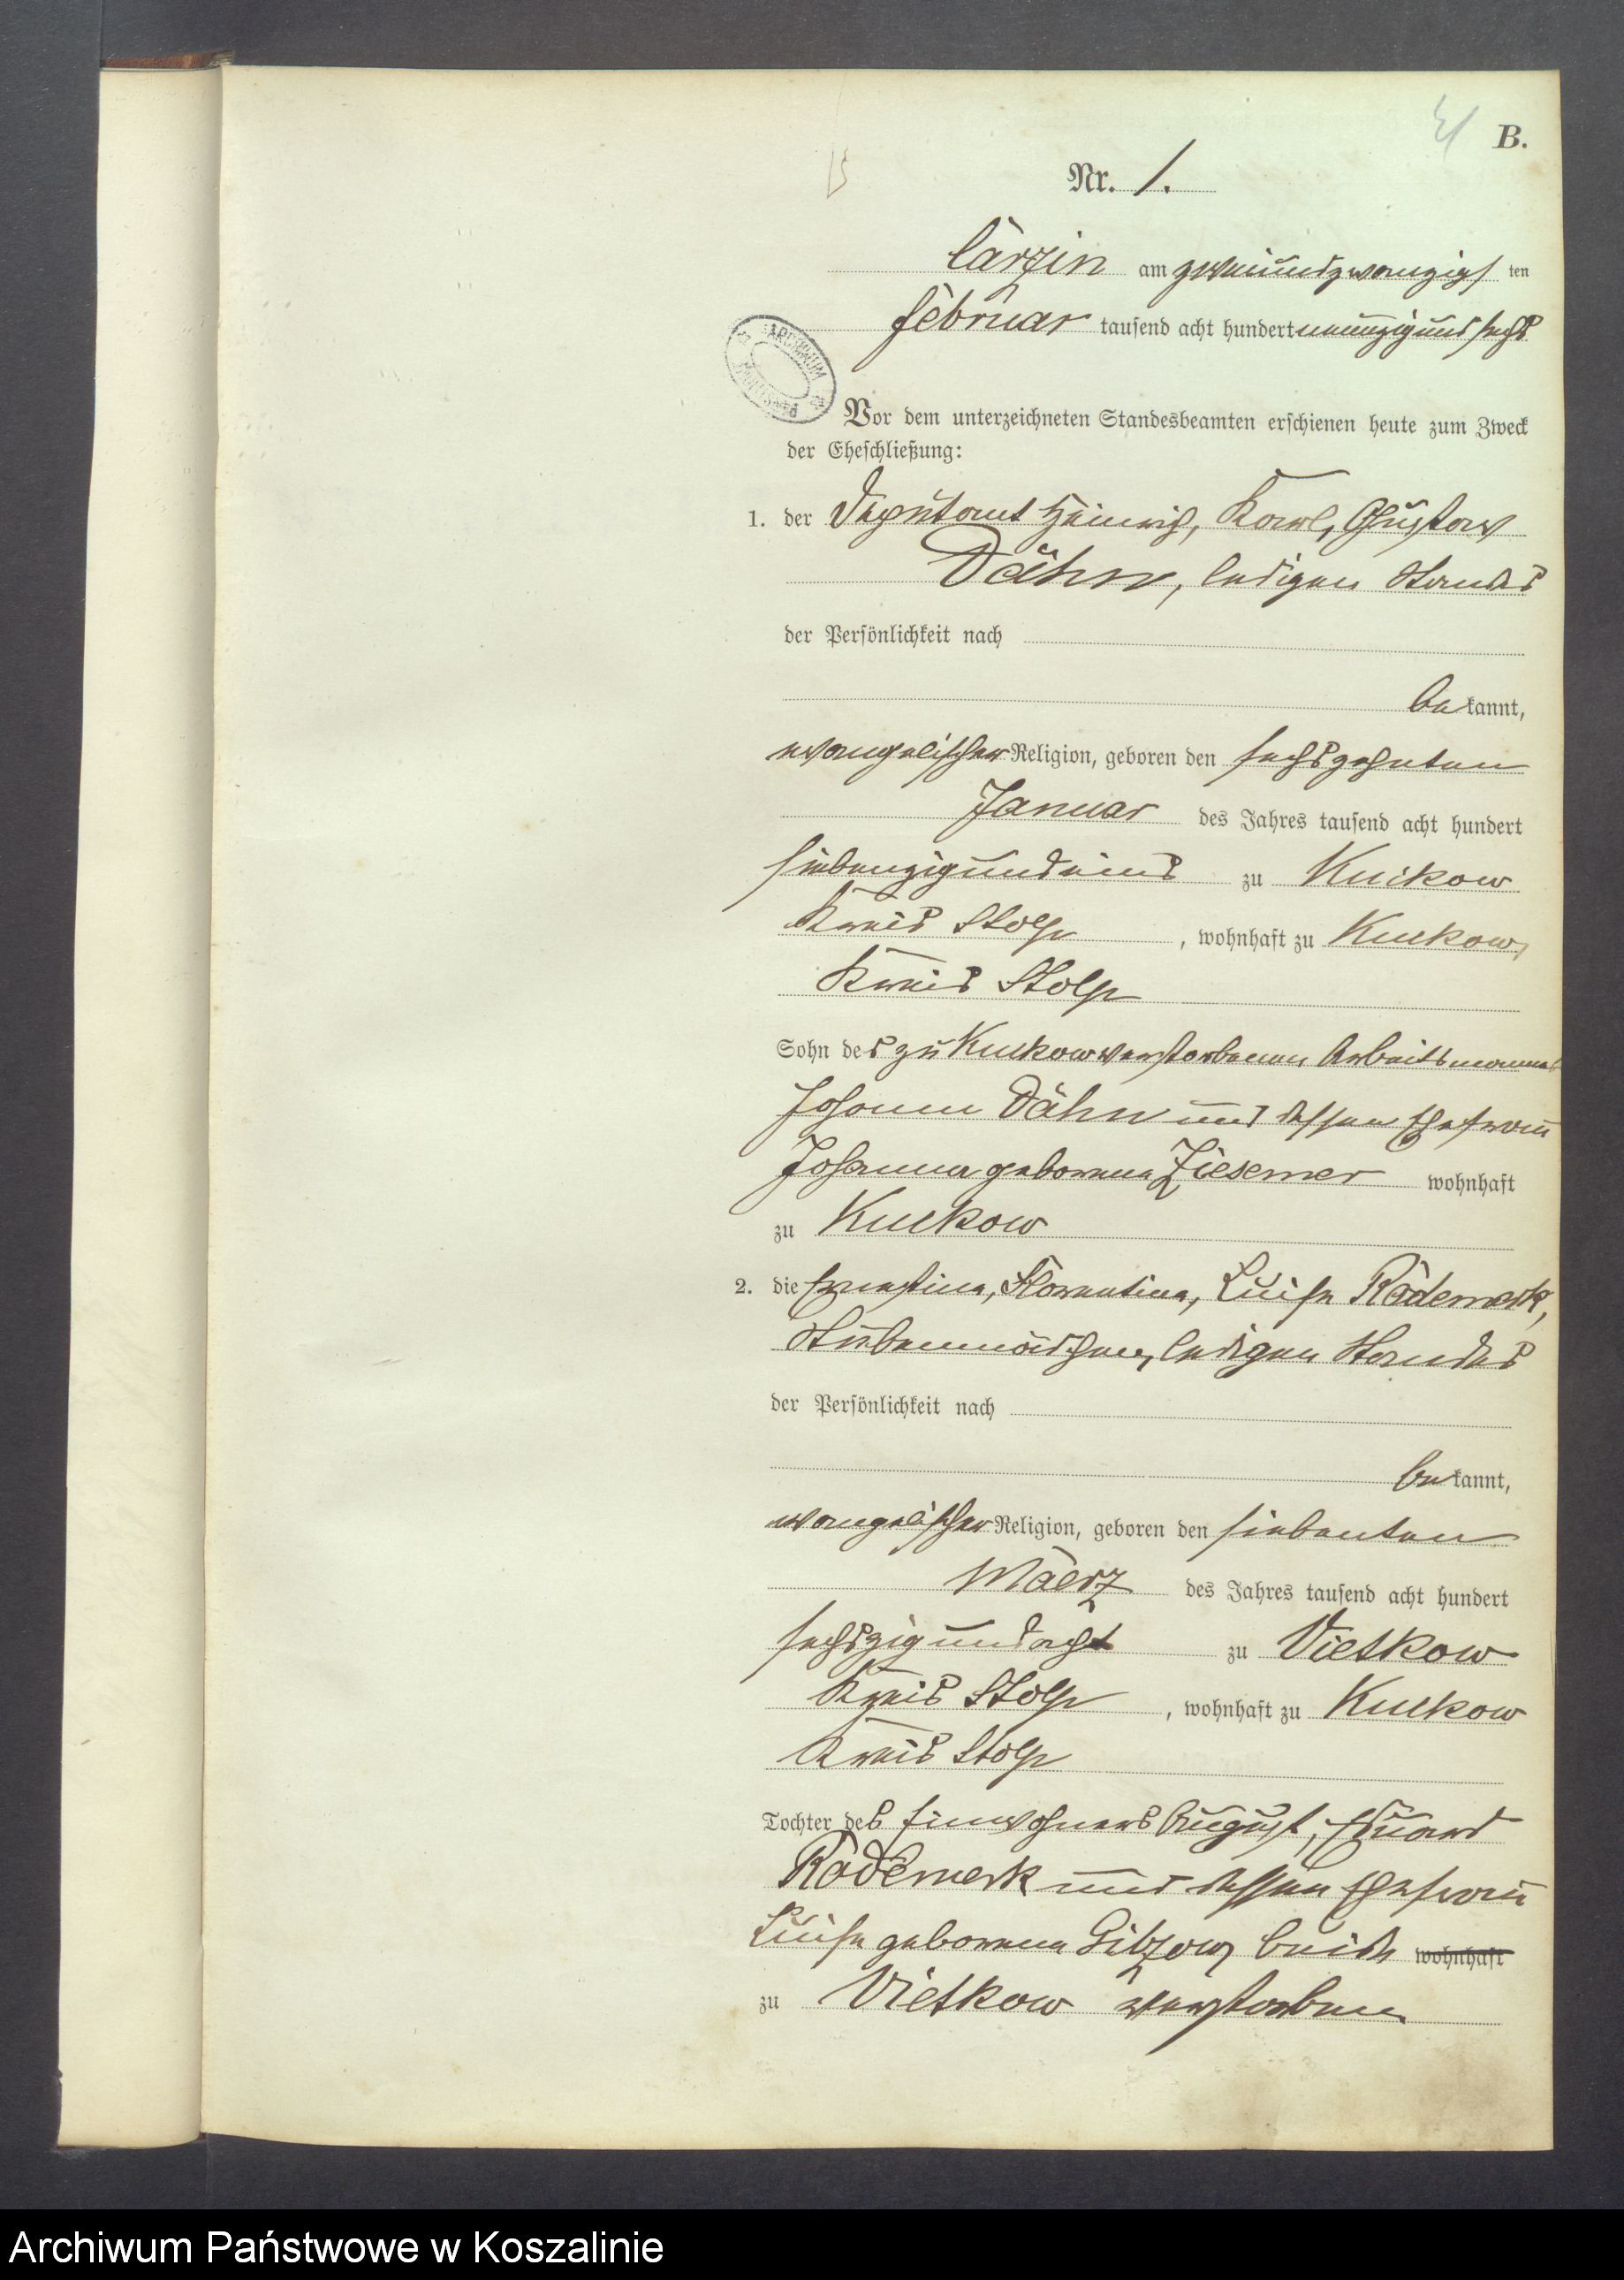 B.
Nr. 1.
Carzin am zweiundzwanzigs ten
Februar tausend acht hundert neunzig und sechs
ARCHIWUM
Vor dem unterzeichneten Standesbeamten erschienen heute zum Zweck
der Eheschließung:
1. der Deputant Heinrich, Karl, Gustav
Dähn, ledigen Standes
der Persönlichkeit nach
bekannt,
evangelischer Religion, geboren den sechszehnten
Januar des Jahres tausend acht hundert
siebenzig und eins zu Kuckow
Kreis Stolp, wohnhaft zu Kuckow,
Kreis Stolp
Sohn des zu Kuckow verstorbenen Arbeitsmannes
Johann Dähn und dessen Ehefrau
Johanna geborene Ziesemer wohnhaft
zu Kuckow
2. die Ernestine, Florentine, Luise Rademerk,
Stubenmädchen, ledigen Standes
der Persönlichkeit nach
bekannt,
evangelischer Religion, geboren den siebenten
Maerz des Jahres tausend acht hundert
sechszig und acht zu Vietkow
Kreis Stolp, wohnhaft zu Kuckow
Kreis Stolp
Tochter des Einwohners August, Eduard
Rademerk und dessen Ehefrau
Luise geborene Gitzow, beide wohnhaft
zu Vietkow verstorben
Archiwum Państwowe w Koszalinie